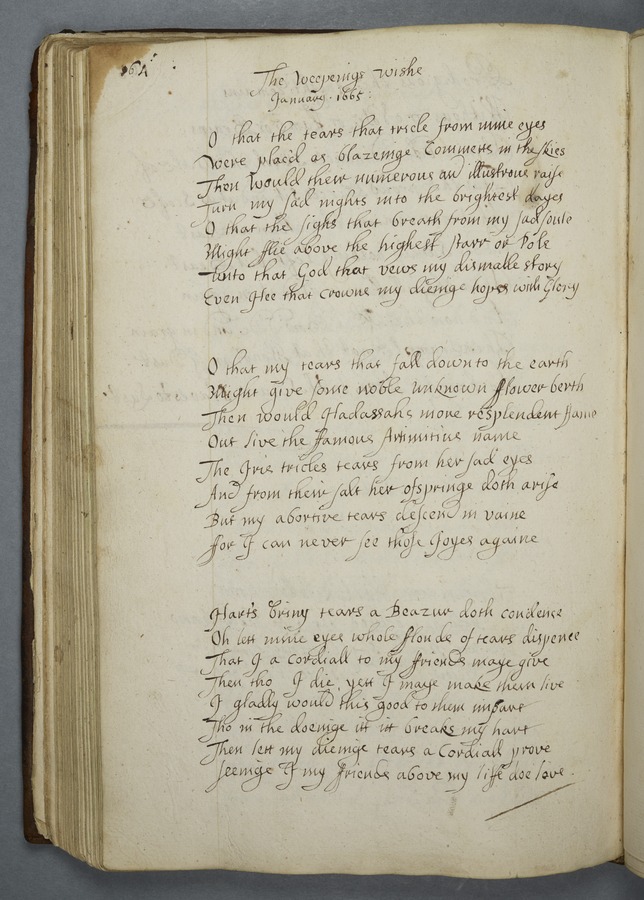 64
The Weepeings wishe
January. 1665:
O that the tears that tricle from mine eyes
Were placed as blazeinge Commetts in the skies
Then Would their numerous and illustrous raise
Turn my sad nights into the brightest dayes
O that the sighs that breath from my sad soule
Might fflie above the highest starr or Pole
Unto that God that vews my dismalle story
Even Hee that crowns my dieinge hopes with Glory
O that my tears that fall down to the earth
Might give some noble unknown fflower berth
Then would Hadassahs more resplendent ffame
Out live the ffamous Artimitius name
The Iris tricles tears from her sad eyes
And from their salt her ofspringe doth arise
But my abortive tears descend in vaine
ffor I can never see those Joyes againe
Harts briny tears a Beazur doth condence
Oh lett mine eyes whole fflouds of tears dispence
That I a cordiall to my ffriends maye give
Then tho I die yett I maye make them live
I gladly would this good to them impart
Tho in the doeinge itt itt breaks my hart
Then lett my dieinge tears a Cordiall prove
Seeinge I my ffriends above my liffe doe love.